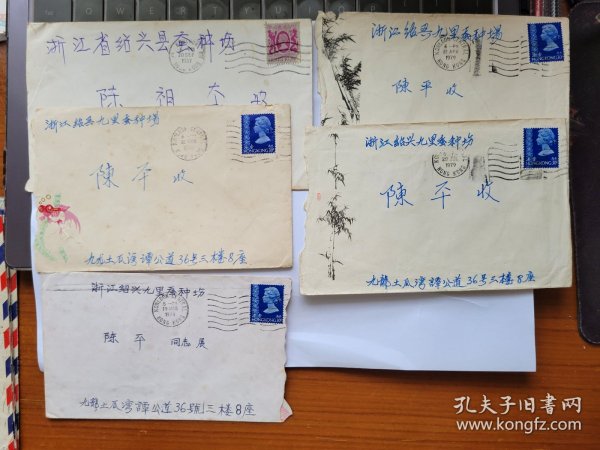 浙江省绍兴县蚕种场
陈祖本收
浙江绍兴九里蚕种場
陳平收
1979
HONG KONG
浙江绍兴九里蚕种场
陳平收
HONG KONG
九龙土瓜湾譚公道36号三楼8座
浙江紹兴九里蚕种场
陳平收
1979
HONG KONG
九龍土瓜湾譚公道36号三楼8座
浙江绍兴九里蚕种场
陈平 同志展
1979
HONG KONG
九龙土瓜湾譚公道36號三楼8座
孔夫子旧书网
www.kongfz.com